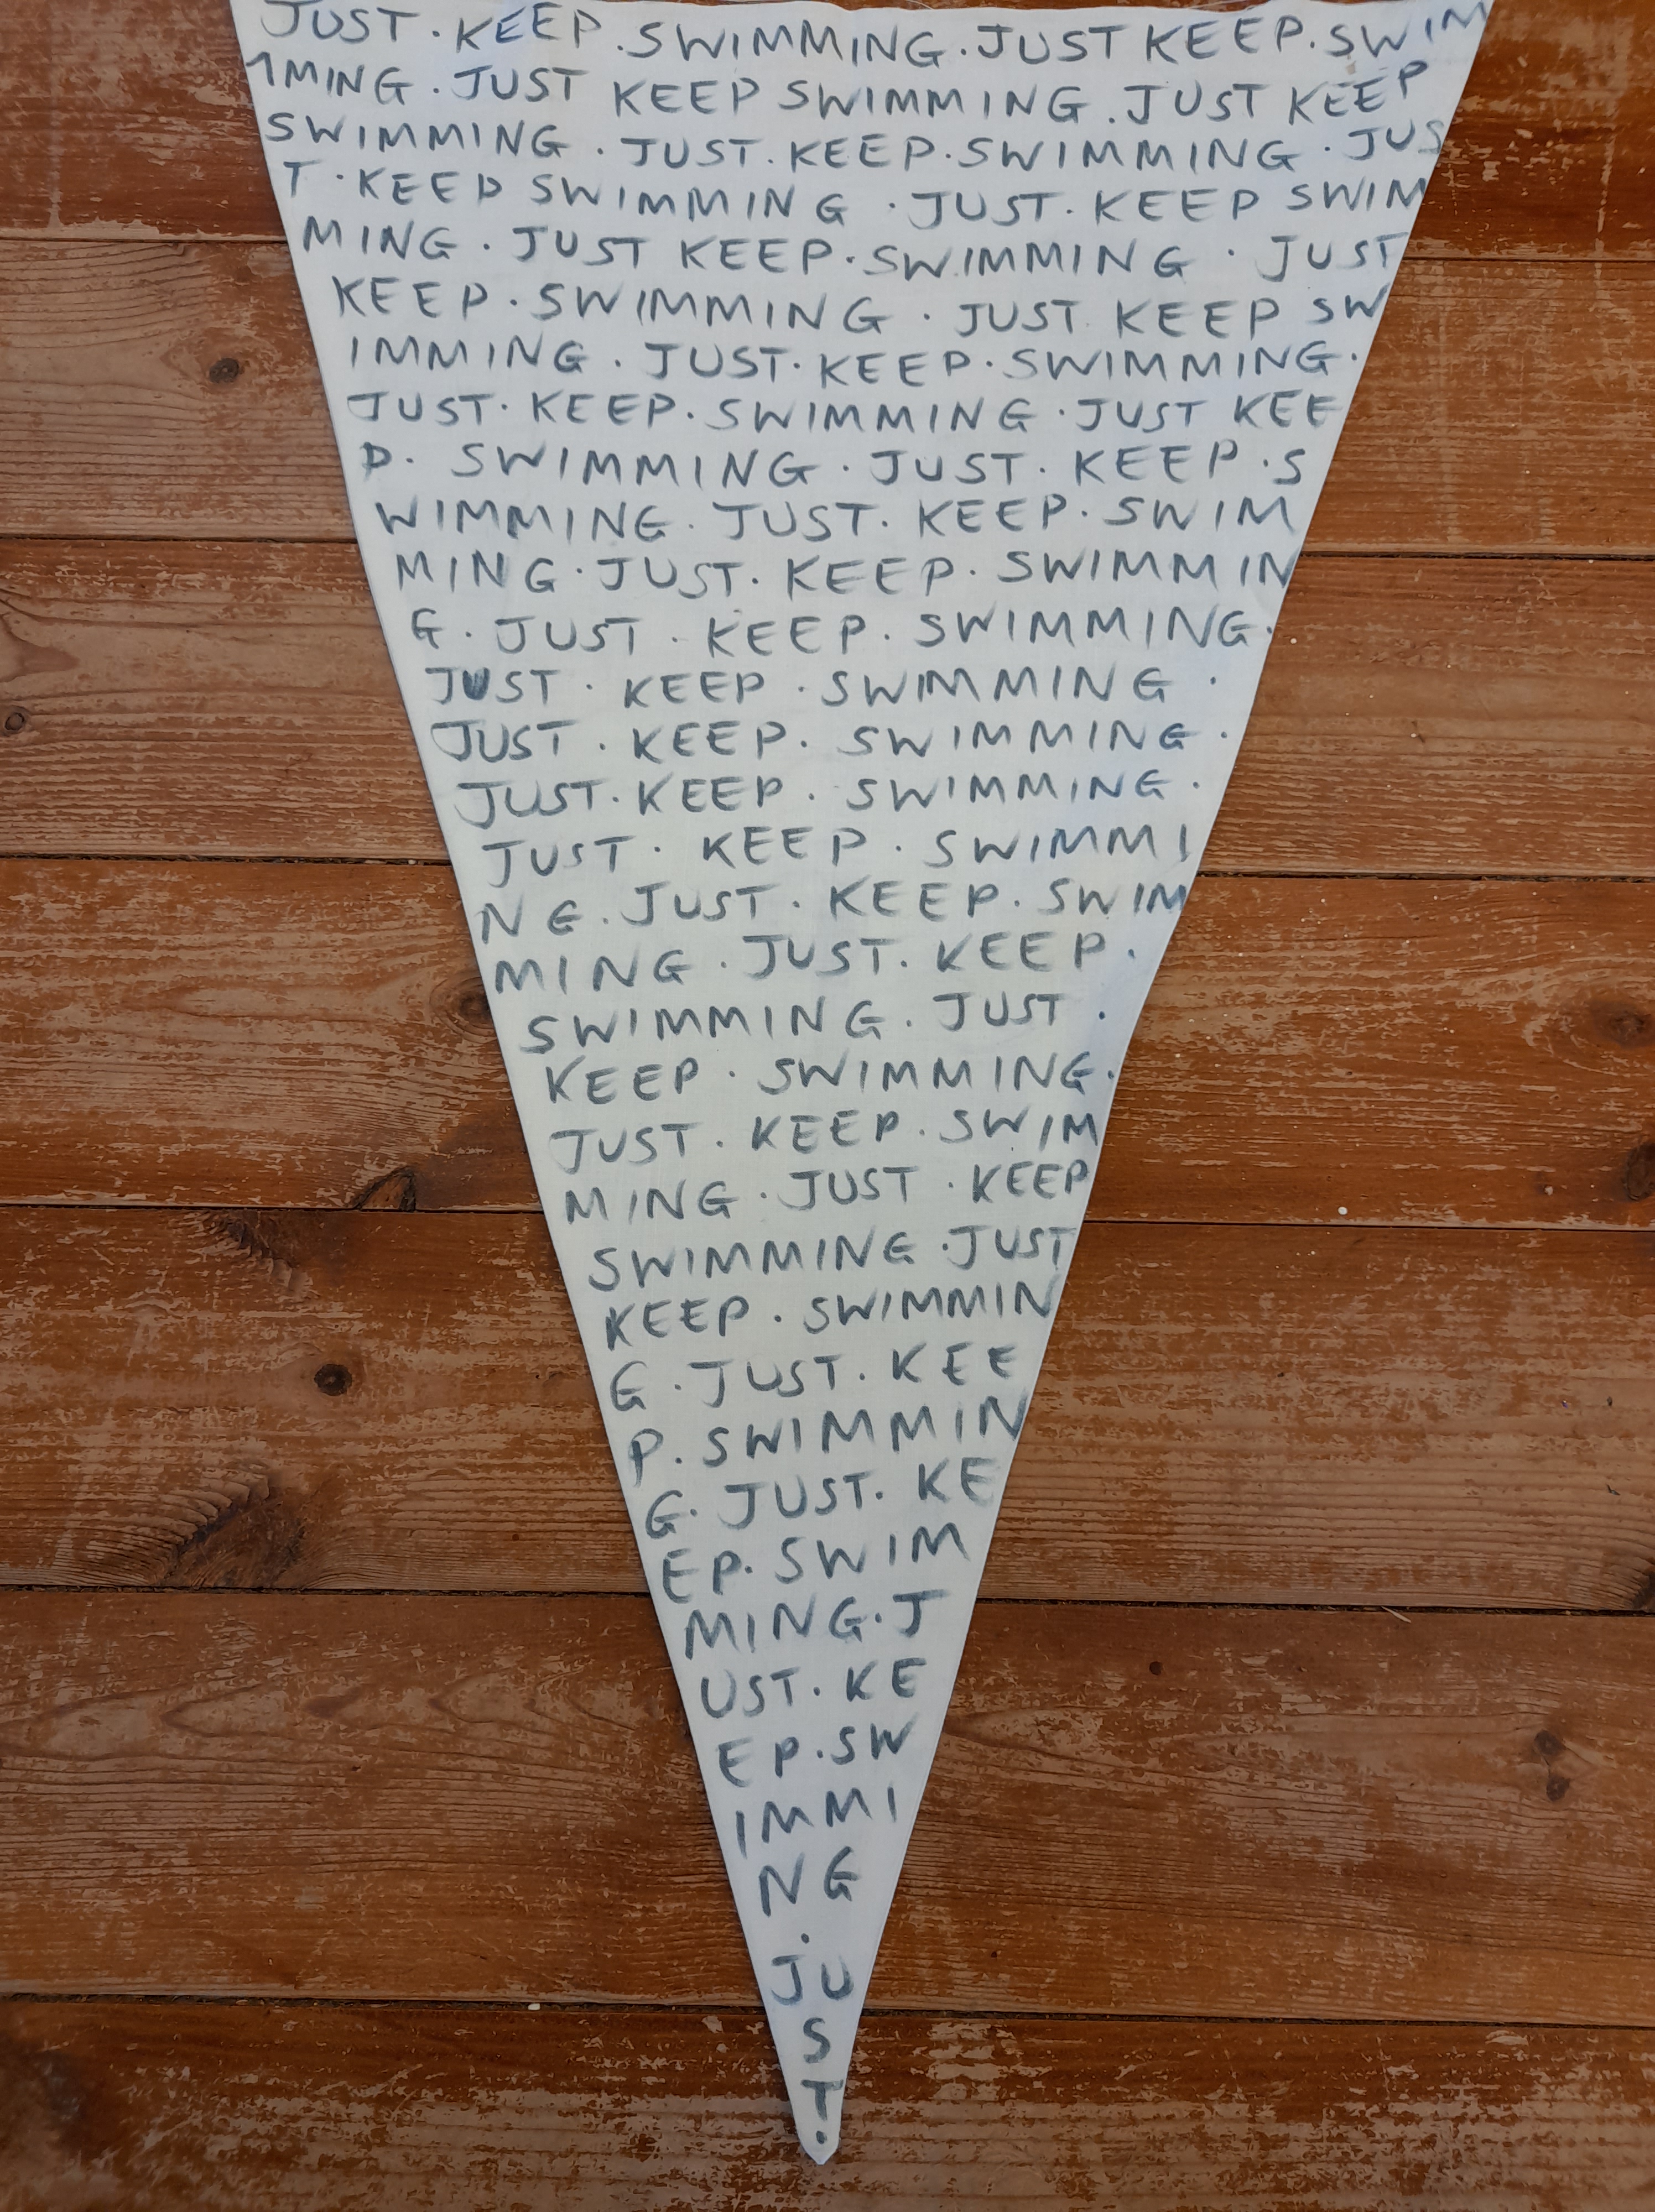 JUST · KEEP · SWIMMING · JUST KEEP · SWIM
MING · JUST KEEP SWIMMING · JUST KEEP
SWIMMING · JUST · KEEP · SWIMMING · JUS
T · KEEP SWIMMING · JUST · KEEP SWIM
MING · JUST KEEP · SWIMMING · JUST
KEEP · SWIMMING · JUST KEEP SW
IMMING · JUST · KEEP · SWIMMING ·
JUST · KEEP · SWIMMING · JUST KEE
P · SWIMMING · JUST · KEEP · S
WIMMING · JUST · KEEP · SWIM
MING · JUST · KEEP · SWIMMIN
G · JUST · KEEP · SWIMMING ·
JUST · KEEP · SWIMMING ·
JUST · KEEP · SWIMMING ·
JUST · KEEP · SWIMMING ·
JUST · KEEP · SWIMMI
NG · JUST · KEEP · SWIM
MING · JUST · KEEP ·
SWIMMING · JUST ·
KEEP · SWIMMING ·
JUST · KEEP · SWIM
MING · JUST · KEEP
SWIMMING · JUST
KEEP · SWIMMIN
G · JUST · KEE
P · SWIMMIN
G · JUST · KE
EP · SWIM
MING · J
UST · KE
EP · SW
IMMI
NG
·
JU
S
T
·